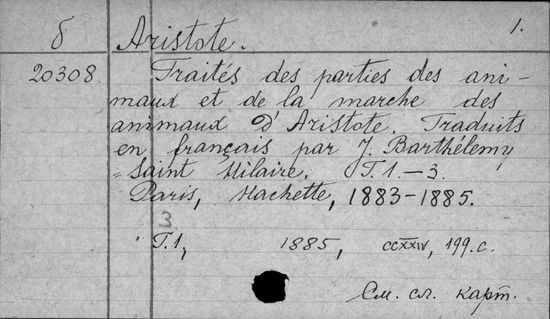 б Aristote. 1.
20308. Traités des parties des ani-
maux et de la marche des
animaux d'Aristote. Traduits
en français par J. Barthélemy
-Saint Hilaire. T. 1.-3.
Paris, Hachette, 1883-1885.
3
T.1, 1885, CCXXIV, 199 с.
См. сл. карт.